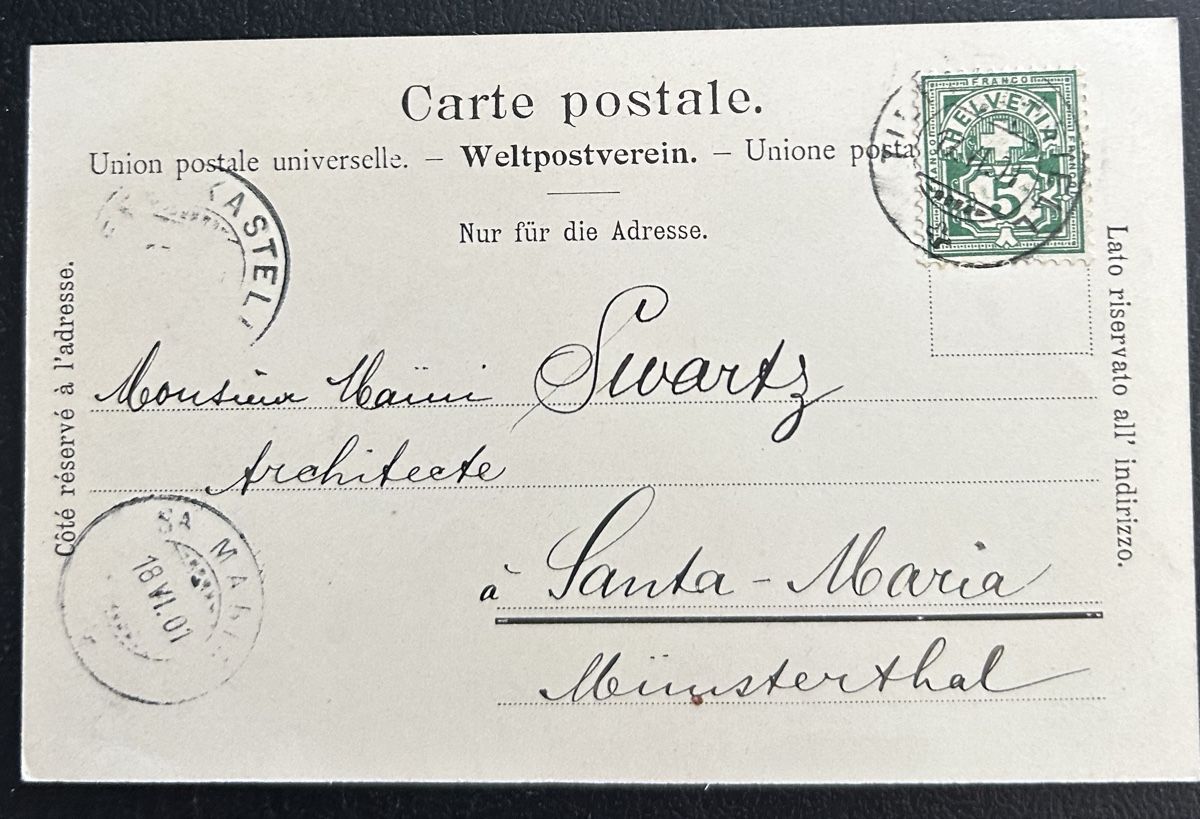 Carte postale.
Union postale universelle. – Weltpostverein. – Unione posta
Nur für die Adresse.
Côté réservé à l'adresse.
Lato riservato all' indirizzo.
FRANCO
HELVETIA
5
KASTEL
Monsieur Swartz
Architecte
à Santa-Maria
Münsterthal
STA MARIA
18 VI.01